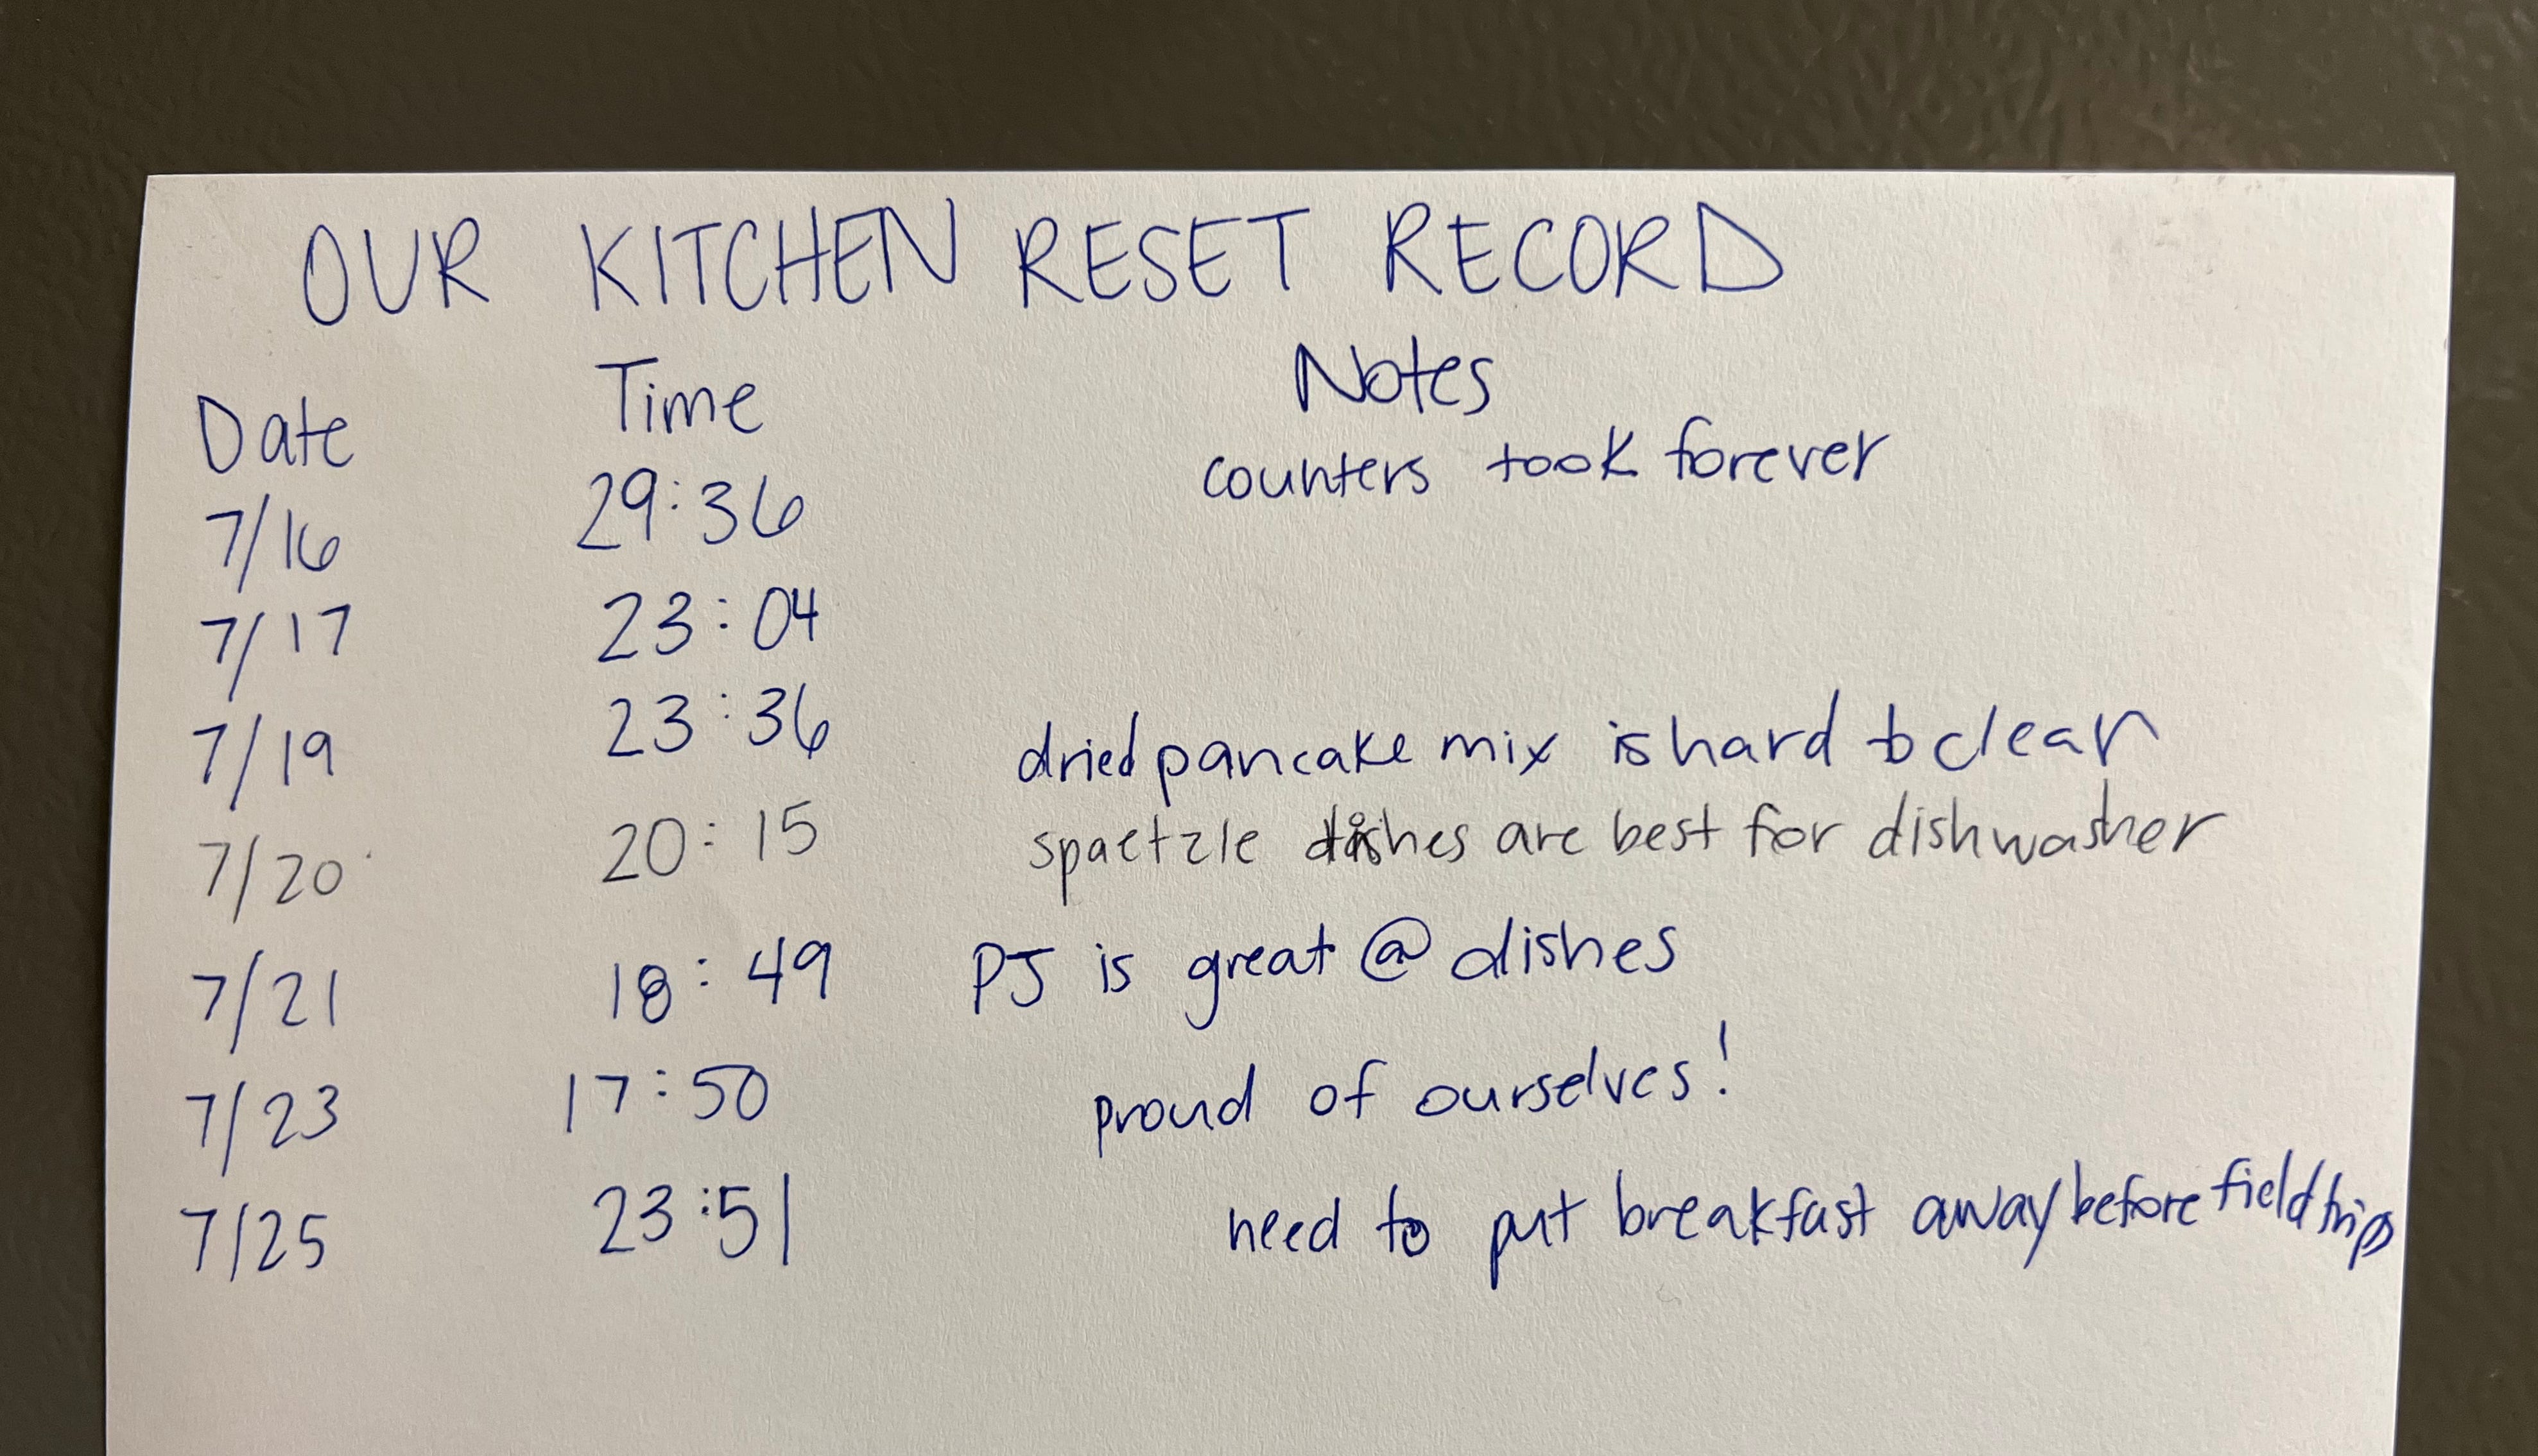 OUR KITCHEN RESET RECORD
Date Time Notes
7/16 29:36 counters took forever
7/17 23:04
7/19 23:36 dried pancake mix is hard to clean
7/20 20:15 spaetzle dishes are best for dishwasher
7/21 18:49 PJ is great @ dishes
7/23 17:50 proud of ourselves!
7/25 23:51 need to put breakfast away before field trips